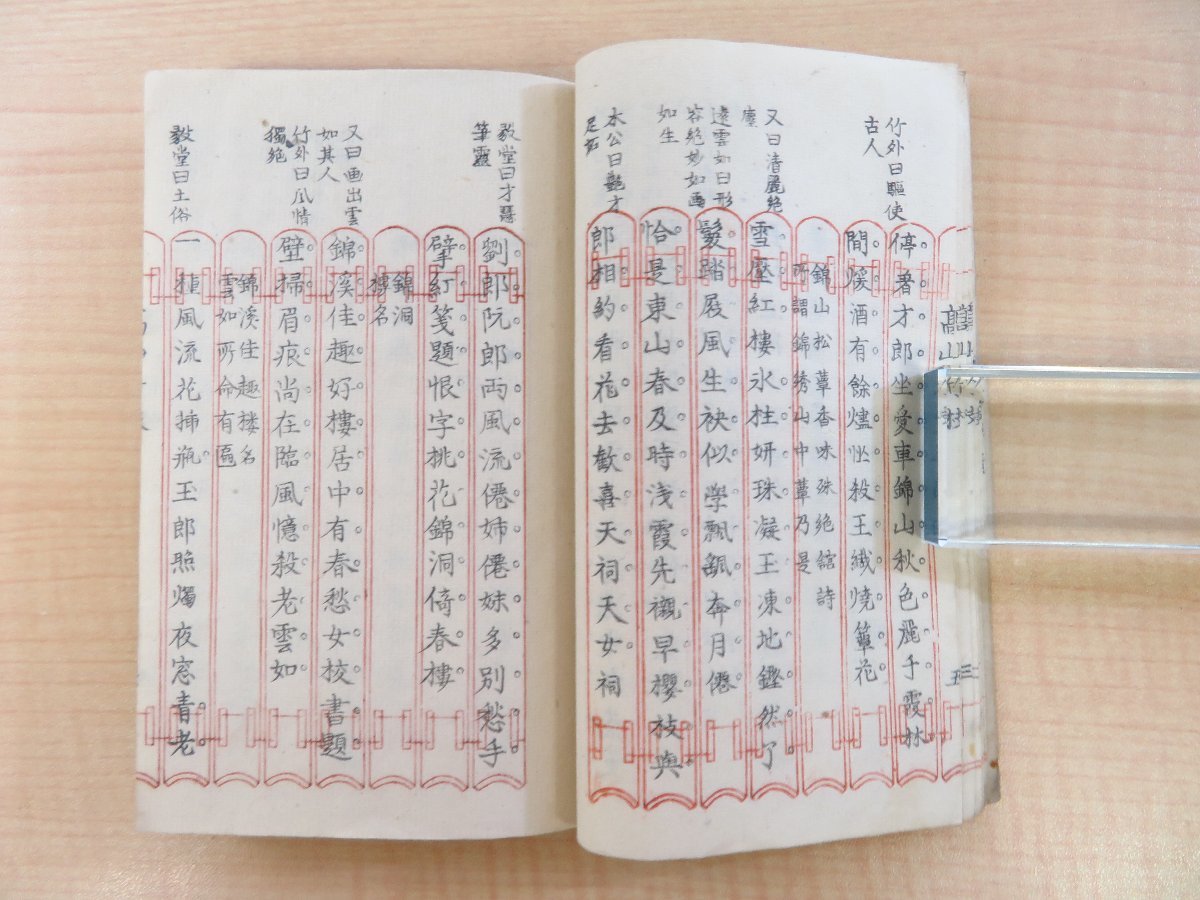 竹外曰驅使
古人
又曰清麗絶
塵
遠雲如曰形
容絶妙如画
如生
木公曰艶才
足妬
停著才郎坐愛車錦山秋色麗手霞林
間煖酒有餘燼坐殺王纎燒簞花
錦山松蕈香味殊絶舘詩
所謂錦綉山中蕈乃是
雪壓紅樓氷柱妍珠凝玉凍地鏗然了
鬟踏屐風生袂似學飄飄奔月僊
恰是東山春及時浅霞先襯早櫻枝與
郎相約看花去歓喜天祠天女祠
毅堂曰才
筆霞
又曰画出雲
如其人
竹外曰风情
獨絶
毅堂曰土俗
劉郎阮郎両風流僊姉僊妹多別愁手
擘紅箋題恨字桃花錦洞倚春樓
錦洞
樓名
錦溪佳趣好樓居中有春愁女校書題
壁掃眉痕尚在臨風憶殺老雲如
錦溪佳趣樓名
雲如所命有匾
一插風流花插瓶王郎照燭夜窓青老